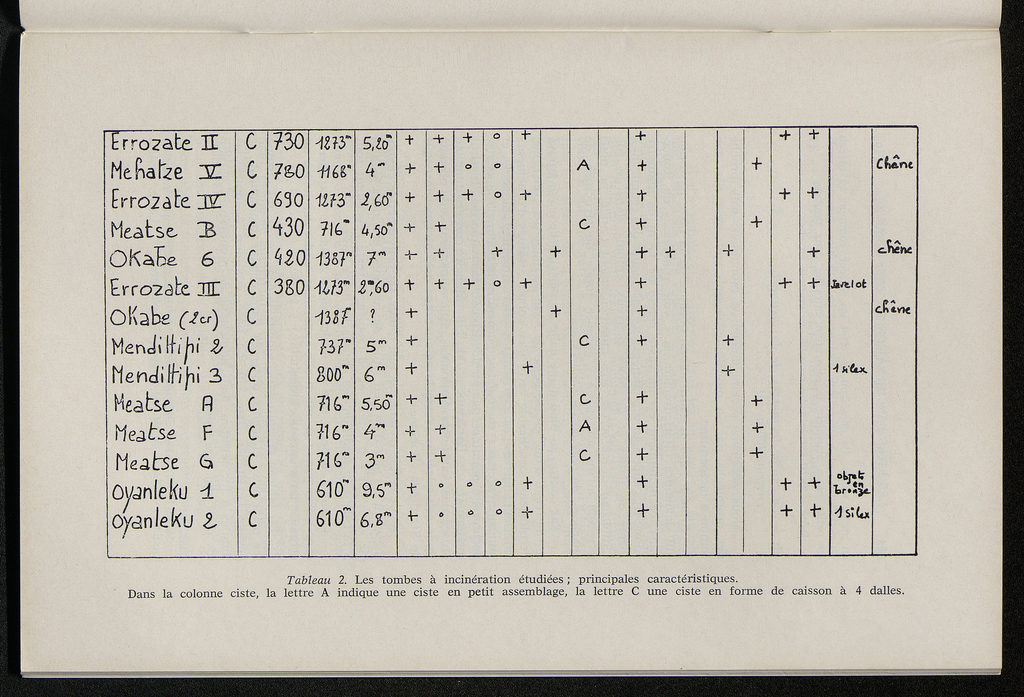 Errozate II C 730 1273m 5,20m + + + o + + + +
Mehatze V C 780 1168m 4m + + o o A + + Chêne
Errozate IV C 690 1273m 2,60m + + + o + + + +
Meatse B C 430 716m 4,50m + + C + +
OKabe 6 C 420 1387m 7m + + + + + + + + chêne
Errozate III C 380 1273m 2m,60 + + + o + + + + Javelot
OKabe (2cr) C 1387 ? + + + chêne
Mendittipi 2 C 737m 5m + C + +
Mendittipi 3 C 800m 6m + + + 1 silex
Meatse A C 716m 5,50m + + C + +
Meatse F C 716m 4m + + A + +
Meatse G C 716m 3m + + C + +
Oyanleku 1 C 610m 9,5m + o o o + + + + objet en bronze
Oyanleku 2 C 610m 6,8m + o o o + + + + 1 silex
Tableau 2. Les tombes à incinération étudiées ; principales caractéristiques.
Dans la colonne ciste, la lettre A indique une ciste en petit assemblage, la lettre C une ciste en forme de caisson à 4 dalles.